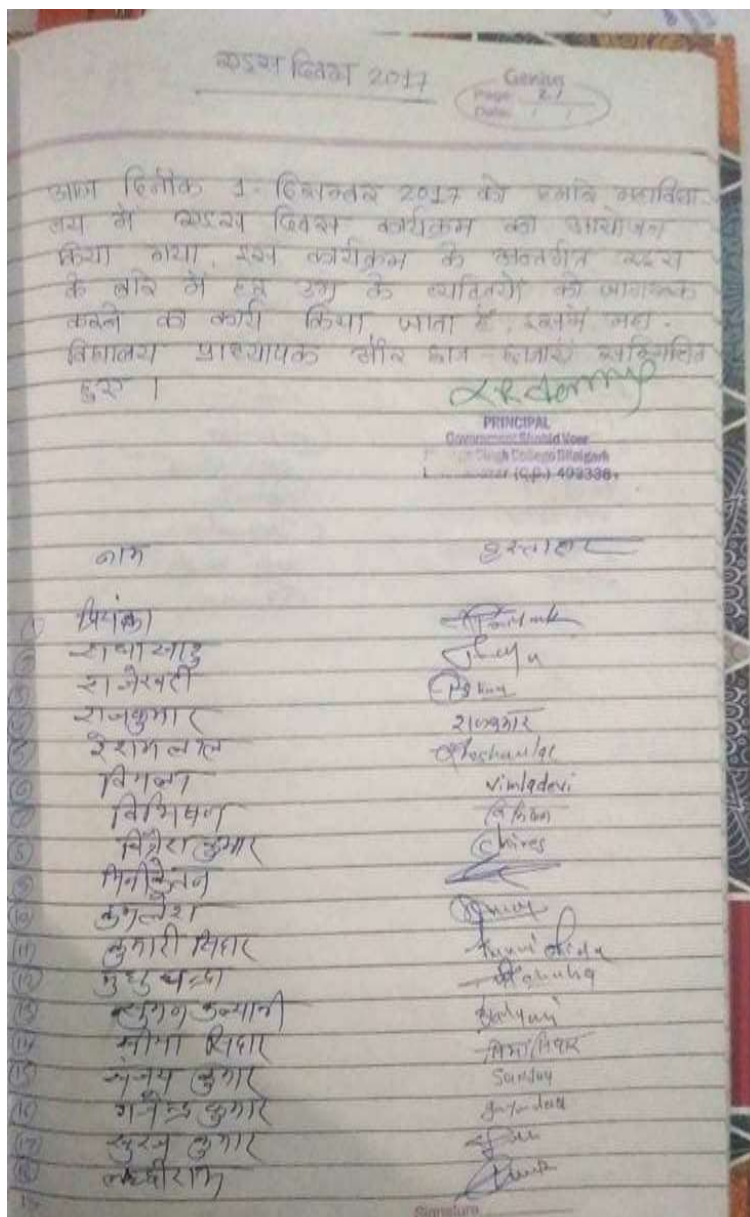 एड्स दिवस 2017
Genius
Page 21
Date / /
आज दिनांक 1-दिसम्बर 2017 को हमारे महाविद्या
लय में एड्स दिवस कार्यक्रम का आयोजन
किया गया. इस कार्यक्रम के अन्तर्गत एड्स
के बारे में हर उम्र के व्यक्तियों को जागरूक
करने का कार्य किया जाता है. इसमें महा-
विद्यालय प्राध्यापक और छात्र-छात्राएं सम्मिलित
हुए ।
PRINCIPAL
Government Shahid Veer
Singh College Bilaigarh
(C.G.) 493338
नाम हस्ताक्षर
(1) प्रियंका
(2) राधा साहू
(3)
(4) राजकुमार राजकुमार
(5) रेशम लाल
(6) विमला Vimladevi
(7) विभिषण
(8) कुमार
(9)
(10) कमलेश
(11) कुमारी सिदार
(12) मधु चन्द्रा
(13) सुमन कल्यानी Kalyani
(14) सीमा सिदार
(15) संजय कुमार Sanjay
(16) गजेन्द्र कुमार
(17) सुरज कुमार
(18) लक्ष्मीराम
19
Signature